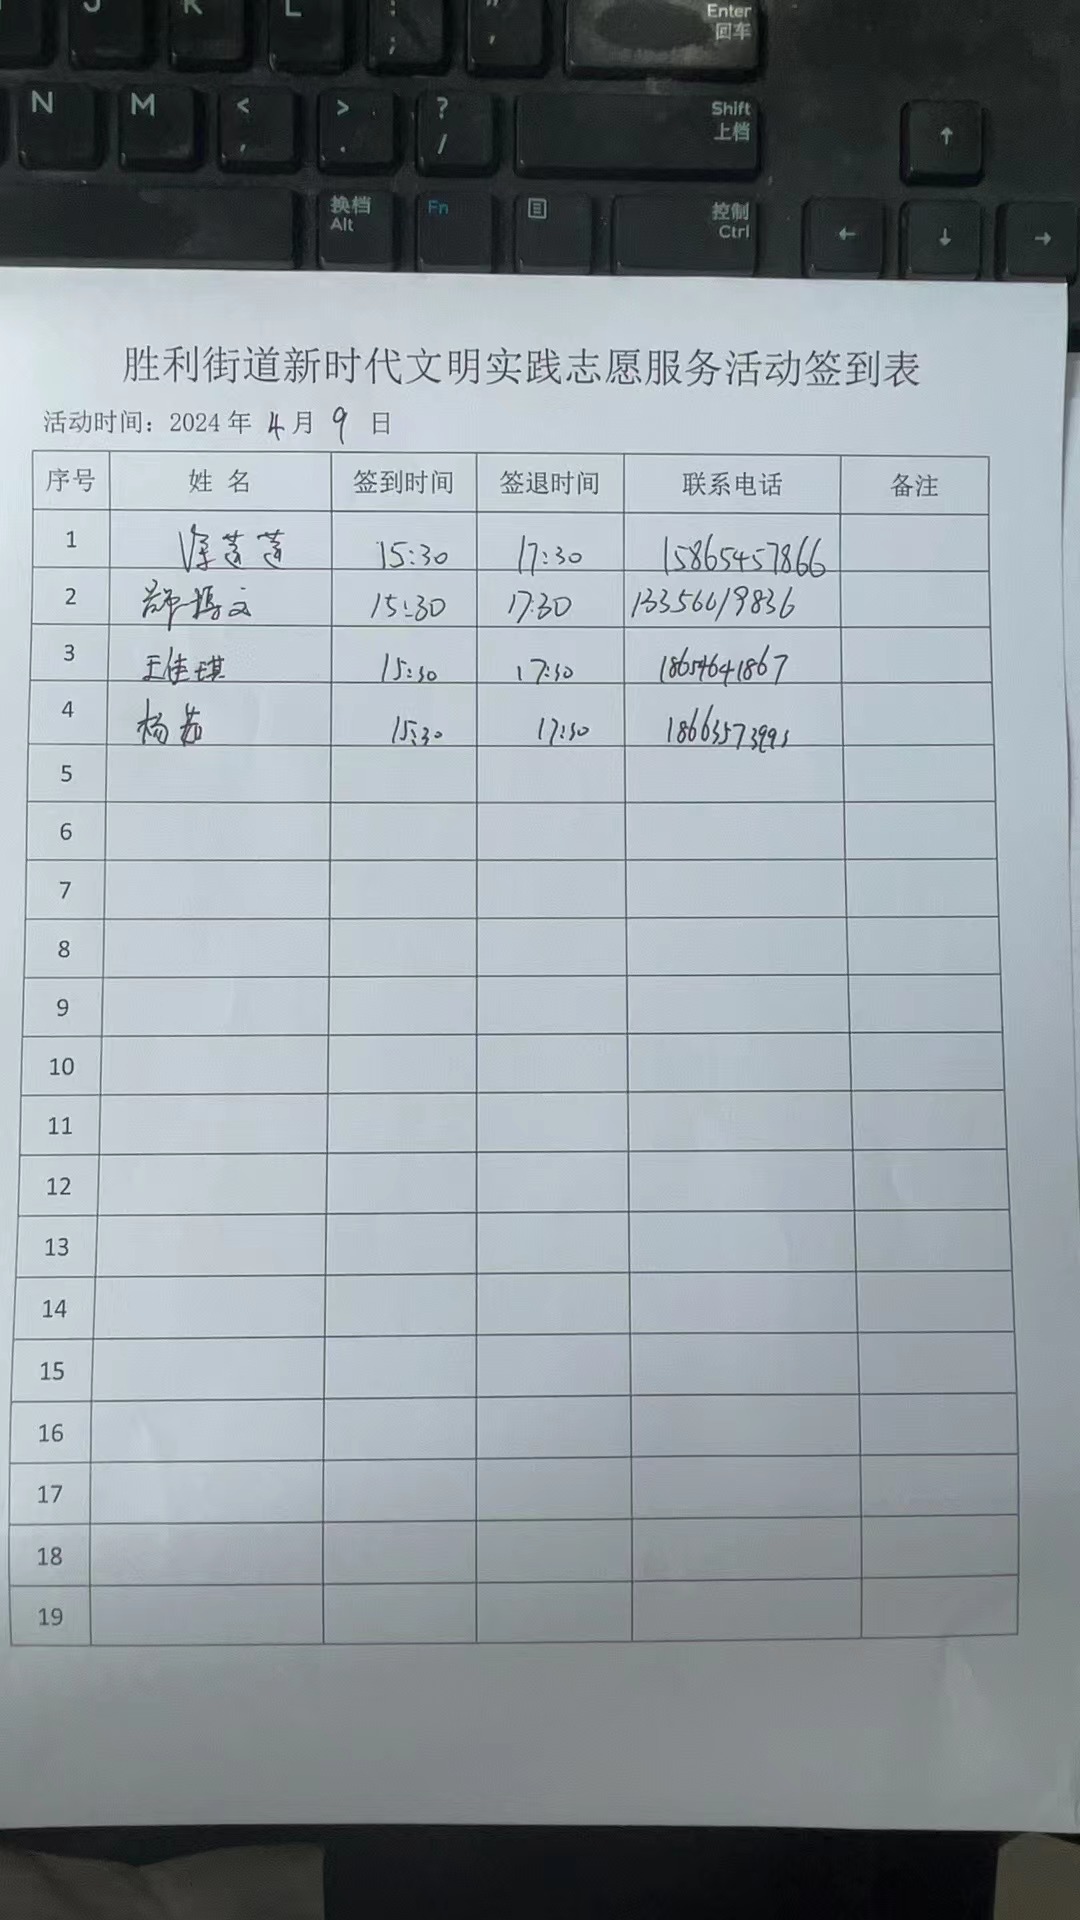 J K L : ; " ' Enter 回车
N M < , > . ? / Shift 上档 ↑
换档 Alt Fn 控制 Ctrl ← ↓ →
胜利街道新时代文明实践志愿服务活动签到表
活动时间：2024 年 4 月 9 日
序号 姓 名 签到时间 签退时间 联系电话 备注
1 徐莲莲 15:30 17:30 15865457866
2 15:30 17:30 13356619836
3 王佳琪 15:30 17:30 18654641867
4 杨茹 15:30 17:30
5
6
7
8
9
10
11
12
13
14
15
16
17
18
19